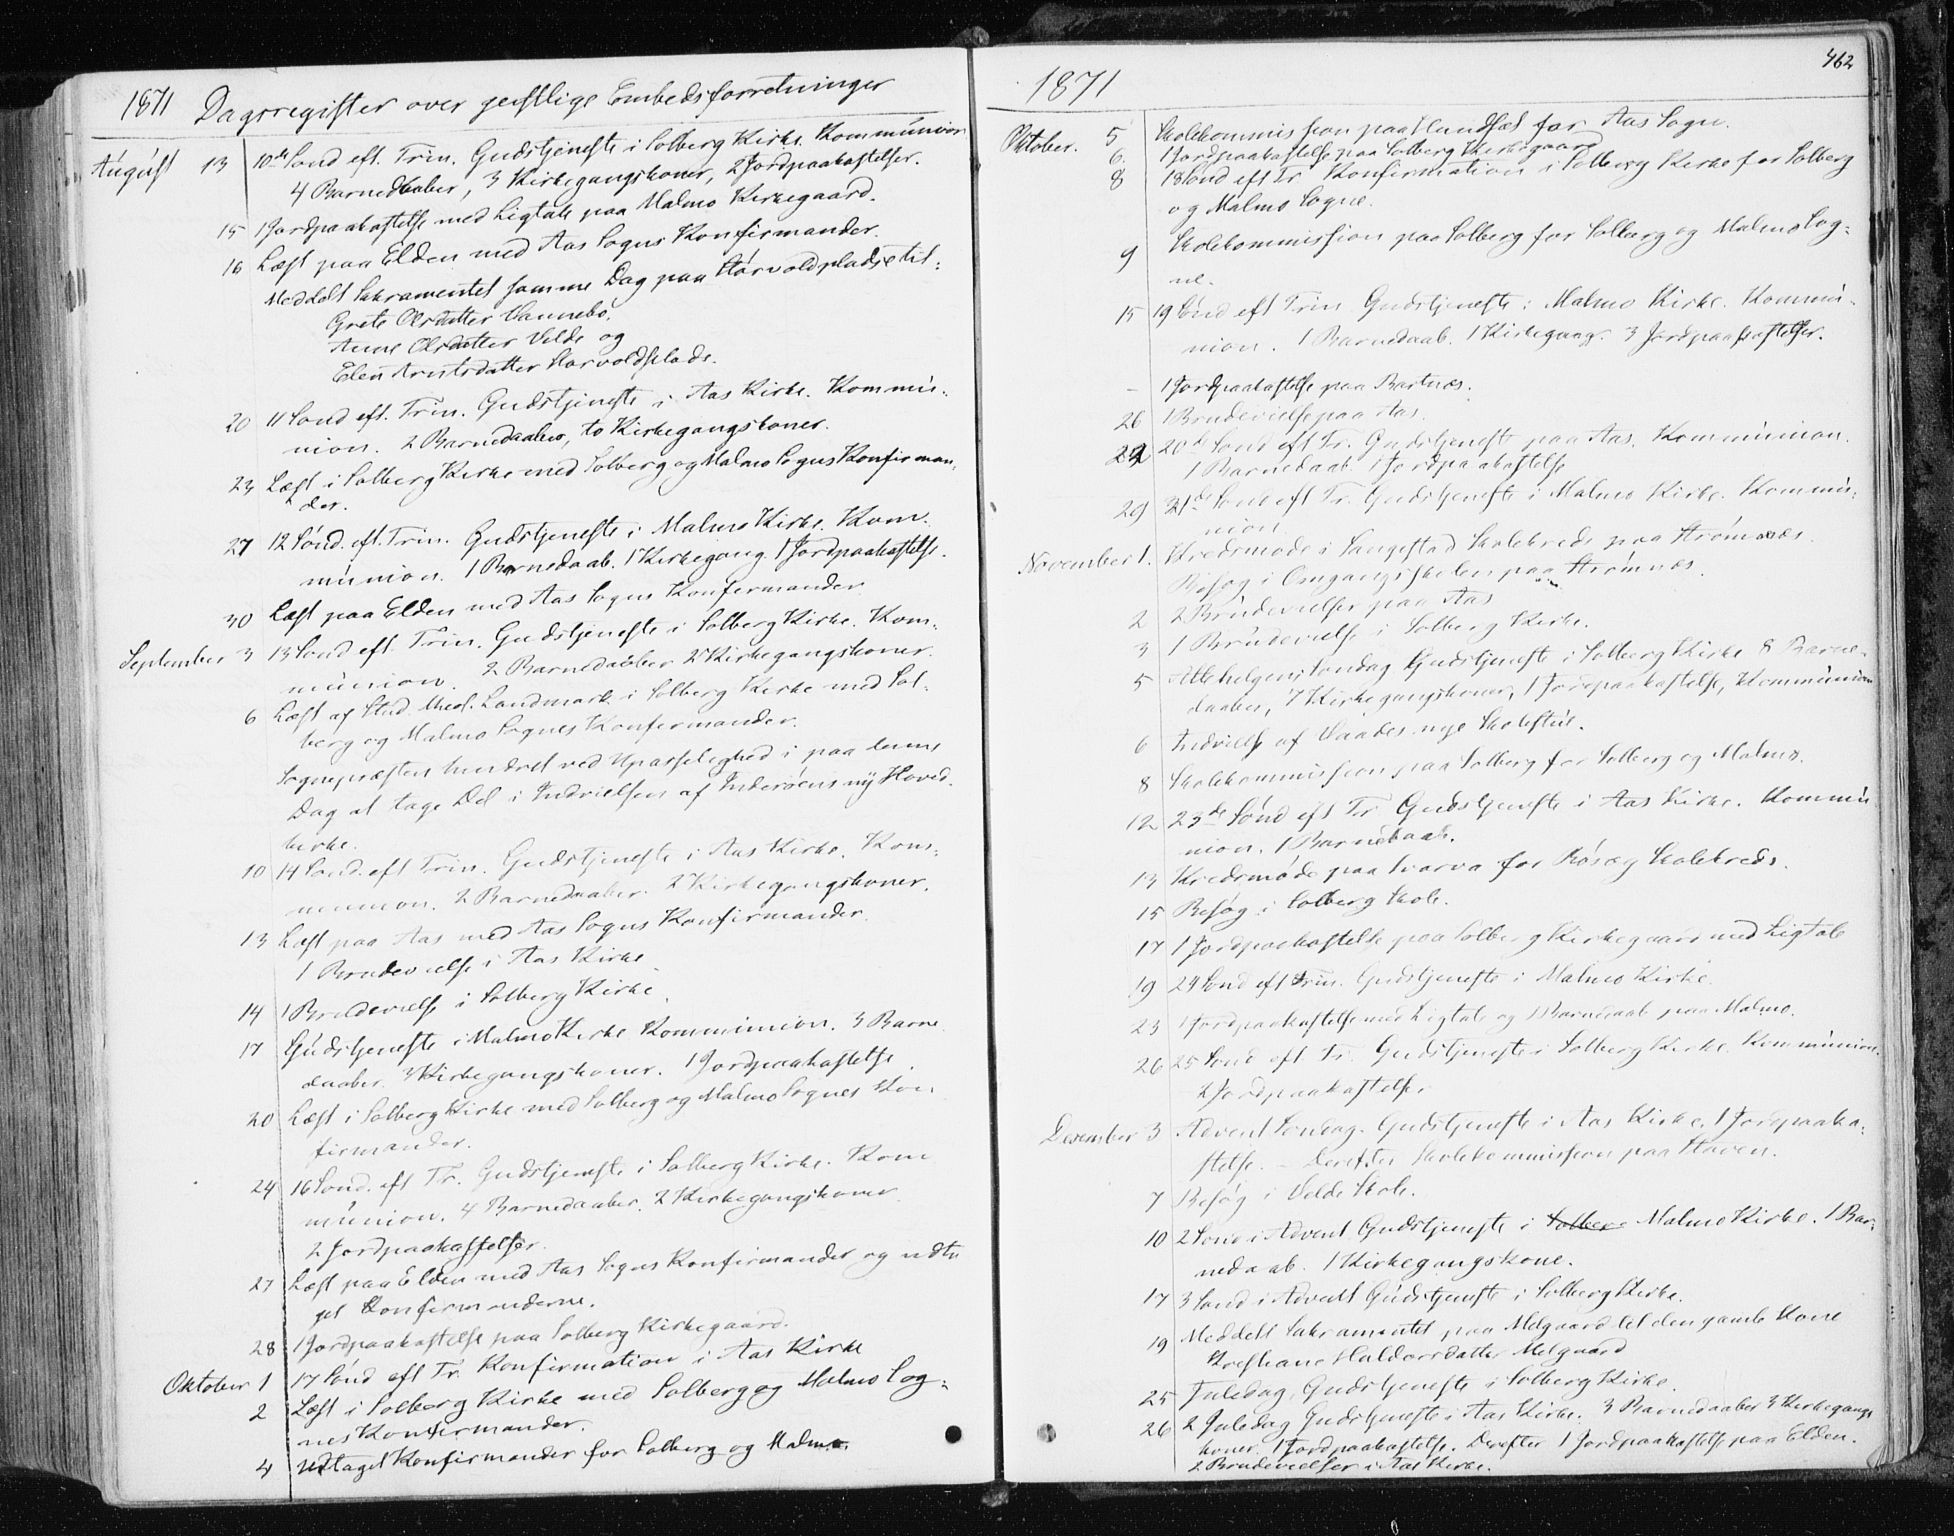 1871 Dagsregister over geistlige Embedsforretninger
August 13 10de Sønd eft. Trin. Gudstjeneste i Solberg Kirke. Kommunion
4 Barnedaaber, 3 Kirkegangskoner, 2 Jordpaakastelser.
15 1 Jordpaakastelse med Ligtale paa Malmo Kirkegaard.
16 Læst paa Elden med Aas Sogns Konfirmander.
Meddelt Sakramentet samme Dag paa Harvoldpladse til:
Grete Olsdatter Vannebo,
Anne Olsdatter Velde og
Elen Arntsdatter Harvoldplads.
20 11 Sønd eft. Trin. Gudstjeneste i Aas Kirke. Kommu-
nion. 2 Barnedaaber, to Kirkegangskoner.
23 Læst i Solberg Kirke med Solberg og Malmo Sogns Konfirman-
der.
27 12 Sønd. eft. Trin. Gudstjeneste i Malmo Kirke. Kom-
munion. 1 Barnedaab. 1 Kirkegang. 1 Jordpaakastelse.
30 Læst paa Elden med Aas Sogns Konfirmander
September 3 13 Sønd eft. Trin. Gudstjeneste i Solberg Kirke. Kom-
munion. 2 Barnedaaber 2 Kirkegangskoner.
6 Læst af Stud. theol. Landmark i Solberg Kirke med Sol-
berg og Malmo Sognes Konfirmander.
Sognepræsten hindret ved Upasselighed i paa denne
Dag at tage Del i Indvielsen af Inderøens ny Hoved-
kirke.
10 14 Sønd. eft Trin. Gudstjeneste i Aas Kirke. Kom-
munion. 2 Barnedaaber. 2 Kirkegangskoner.
13 Læst paa Aas med Aas Sogns Konfirmander.
1 Brudevielse i Aas Kirke
14 1 Brudevielse i Solberg Kirke.
17 Gudstjeneste i Malmo Kirke Kommunion. 3 Barne-
daaber. 3 Kirkegangskoner. 1 Jordpaakastelse.
20 Læst i Solberg Kirke med Solberg og Malmo Sognes Kon-
firmander.
24 16 Sønd. eft Tr. Gudstjeneste i Solberg Kirke. Kom
munion. 4 Barnedaaber. 2 Kirkegangskoner
2 Jordpaakastelser.
27 Læst paa Elden med Aas Sogns Konfirmander og udta
get Konfirmanderne.
28 1 Jordpaakastelse paa Solberg Kirkegaard.
Oktober 1 17 Sønd eft Tr. Konfirmation i Aas Kirke
2 Læst i Solberg Kirke med Solberg og Malmo Sog-
nes Konfirmander.
4 Udtaget Konfirmander for Solberg og Malmo.
462
1871
Oktober. 5 Skolekommission paa for Aas Sogn.
6. 1 Jordpaakastelse paa Solberg Kirkegaard
8 18 Sønd eft Tr. Konfirmation i Solberg Kirke for Solberg
og Malmo Sogne.
9 Skolekommission paa Solberg for Solberg og Malmo Sog-
ne.
15 19 Sønd eft Trin Gudstjeneste i Malmo Kirke. Kommu-
nion. 1 Barnedaab. 1 Kirkegang. 3 Jordpaakastelser.
- 1 Jordpaakastelse paa Bartnæs.
26 1 Brudevielse paa Aas.
22 20de Sønd eft Tr. Gudstjeneste paa Aas. Kommunion.
1 Barnedaab. 1 Jordpaakastelse
29 21de Sønd eft Tr. Gudstjeneste i Malmo Kirke. Kommu-
nion.
November 1. Kredsmøde i Langestad Skolekreds paa Strømnæs.
Besøg i Omgangsskolen paa Strømnæs.
2 2 Brudevielser paa Aas
3 1 Brudevielse i Solberg Kirke.
5 Allehelgens Søndag Gudstjeneste i Solberg Kirke 8 Barne-
daaber, 7 Kirkegangskoner, 1 Jordpaakastelse, Kommunion
6 Indvielse af nye Skolestue.
8 Skolekommission paa Solberg for Solberg og Malmo.
12 23de Sønd eft Tr Gudstjeneste i Aas Kirke. Kommu
nion. 1 Barnedaab.
13 Kredsmøde paa Svarva for Røseg Skolekreds.
15 Besøg i Solberg Skole.
17 1 Jordpaakastelse paa Solberg Kirkegaard med Ligtale
19 24 Sønd eft Trin. Gudstjeneste i Malmo Kirke.
23 1 Jordpaakastelse med Ligtale og 1 Barnedaab paa Malmo.
26 25 Sønd eft Tr. Gudstjeneste i Solberg Kirke. Kommunion.
2 Jordpaakastelser
December 3 Advent Søndag. Gudstjeneste i Aas Kirke. 1 Jordpaaka-
stelse. – Derefter Skolekommission paa Haven.
7 Besøg i Velde Skole.
10 2 Sønd i Advent Gudstjeneste i Solberg Malmo Kirke. 1 Bar-
nedaab. 1 Kirkegangskone.
17 3 Sønd i Advent Gudstjeneste i Solberg Kirke.
19 Meddelt Sakramentet paa Melgaard til den gamle Kone
Haldorsdatter Melgaard
25 Juledag, Gudstjeneste i Solberg Kirke.
26 2 Juledag Gudstjeneste i Aas Kirke. 3 Barnedaaber 3 Kirkegangs
koner. 1 Jordpaakastelse. Derefter 1 Jordpaakastelse paa Elden.
2 Brudevielser i Aas Kirke.